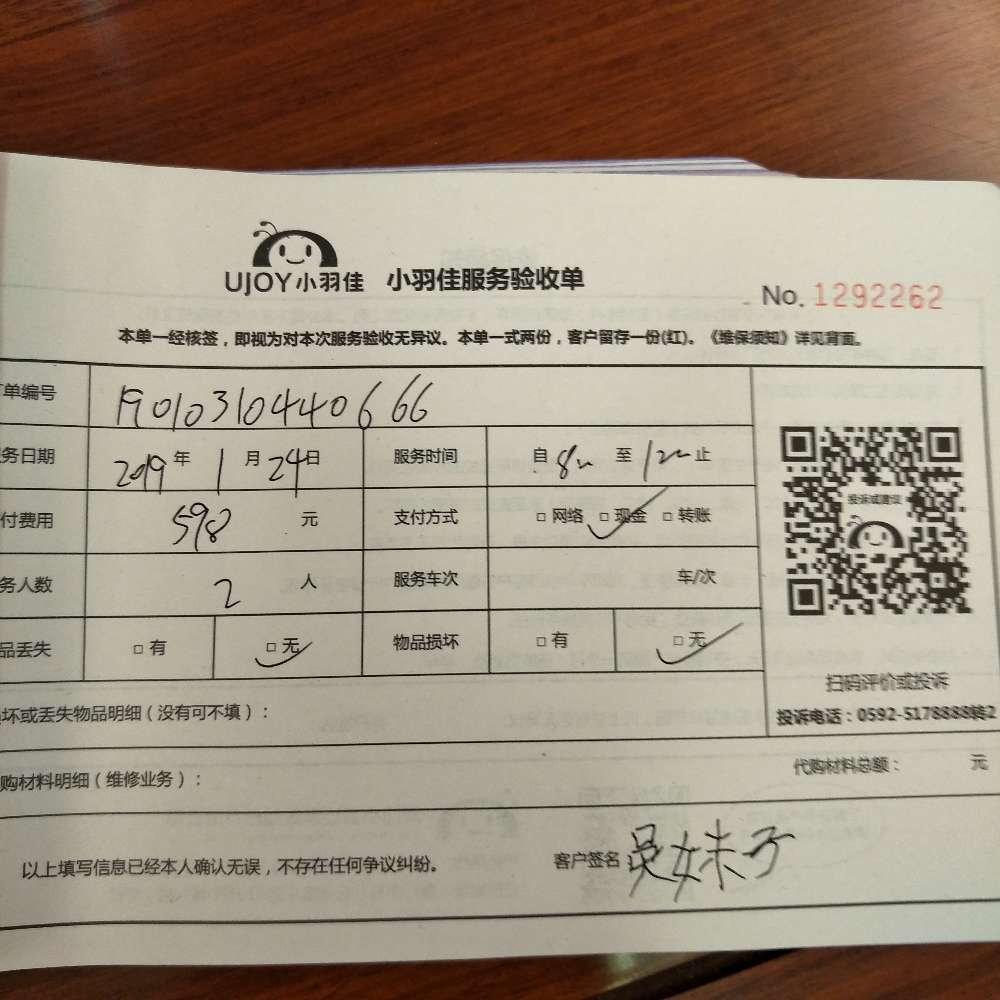 UJOY小羽佳 小羽佳服务验收单
No. 1292262
本单一经核签，即视为对本次服务验收无异议。本单一式两份，客户留存一份(红)。《维保须知》详见背面。
单编号 190103104440666
务日期 2019 年 1 月 24 日 服务时间 自 8:00 至 12:00 止
付费用 598 元 支付方式 □ 网络 □ 现金 □ 转账
务人数 2 人 服务车次 车/次
品丢失 □ 有 □ 无 物品损坏 □ 有 □ 无
投诉或建议
扫码评价或投诉
投诉电话：0592-5178888转2
坏或丢失物品明细（没有可不填）：
购材料明细（维修业务）： 代购材料总额： 元
以上填写信息已经本人确认无误，不存在任何争议纠纷。 客户签名：吴妹子